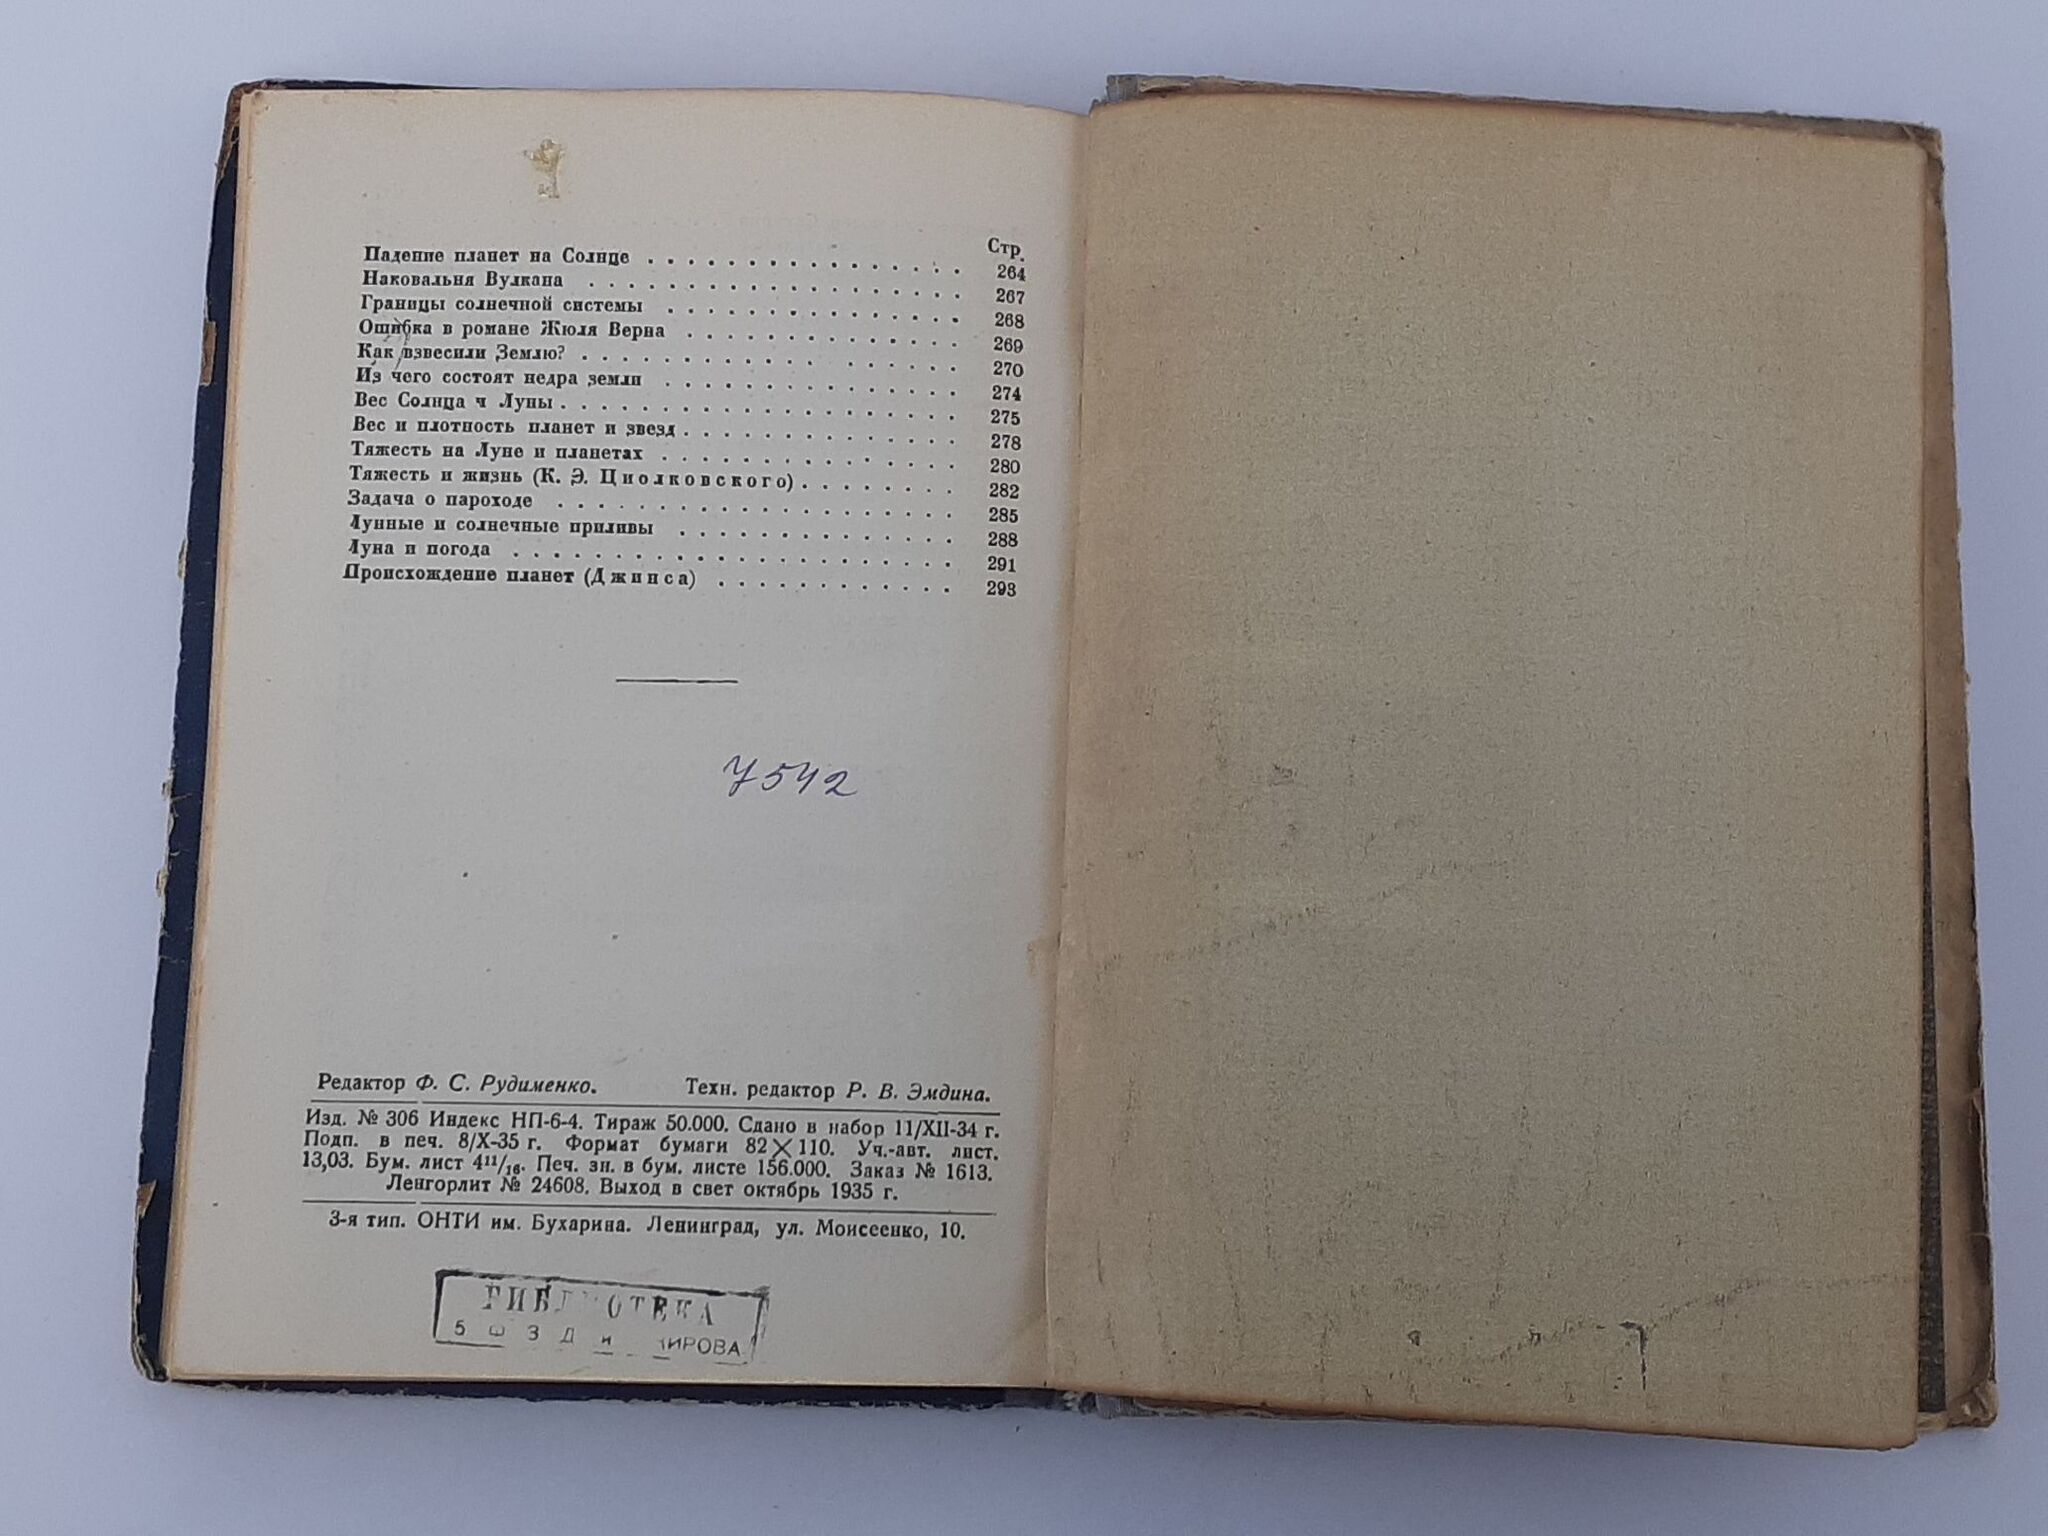 Стр.
Падение планет на Солнце . . . . . . . . . . . . . . . . 264
Наковальня Вулкана . . . . . . . . . . . . . . . . . . . 267
Границы солнечной системы . . . . . . . . . . . . . . . 268
Ошибка в романе Жюля Верна . . . . . . . . . . . . . . 269
Как взвесили Землю? . . . . . . . . . . . . . . . . . . 270
Из чего состоят недра земли . . . . . . . . . . . . . . . 274
Вес Солнца и Луны . . . . . . . . . . . . . . . . . . . . 275
Вес и плотность планет и звезд . . . . . . . . . . . . . . 278
Тяжесть на Луне и планетах . . . . . . . . . . . . . . . 280
Тяжесть и жизнь (К. Э. Циолковского) . . . . . . . . 282
Задача о пароходе . . . . . . . . . . . . . . . . . . . . 285
Лунные и солнечные приливы . . . . . . . . . . . . . . 288
Луна и погода . . . . . . . . . . . . . . . . . . . . . . 291
Происхождение планет (Джинса) . . . . . . . . . . . . 293
7542
Редактор Ф. С. Рудименко. Техн. редактор Р. В. Эмдина.
Изд. № 306 Индекс НП-6-4. Тираж 50.000. Сдано в набор 11/XII-34 г.
Подп. в печ. 8/X-35 г. Формат бумаги 82×110. Уч.-авт. лист.
13,03. Бум. лист 4¹¹/₁₆. Печ. зн. в бум. листе 156.000. Заказ № 1613.
Ленгорлит № 24608. Выход в свет октябрь 1935 г.
3-я тип. ОНТИ им. Бухарина. Ленинград, ул. Моисеенко, 10.
БИБЛИОТЕКА